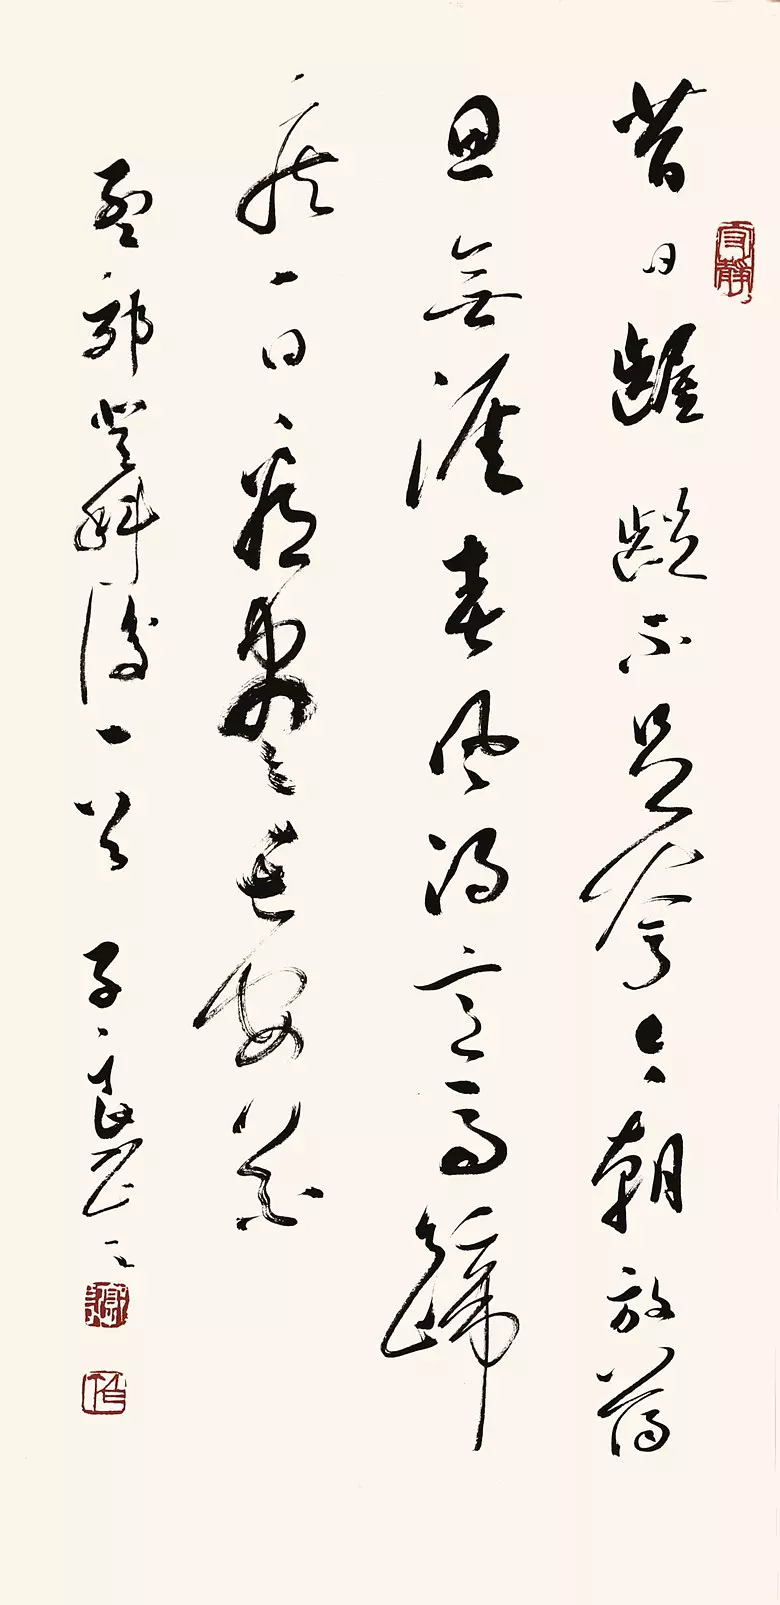 昔日齷齪不足夸今朝放蕩
思無涯春風得意馬蹄
疾一日看盡長安花
孟郊登科後一首 子良